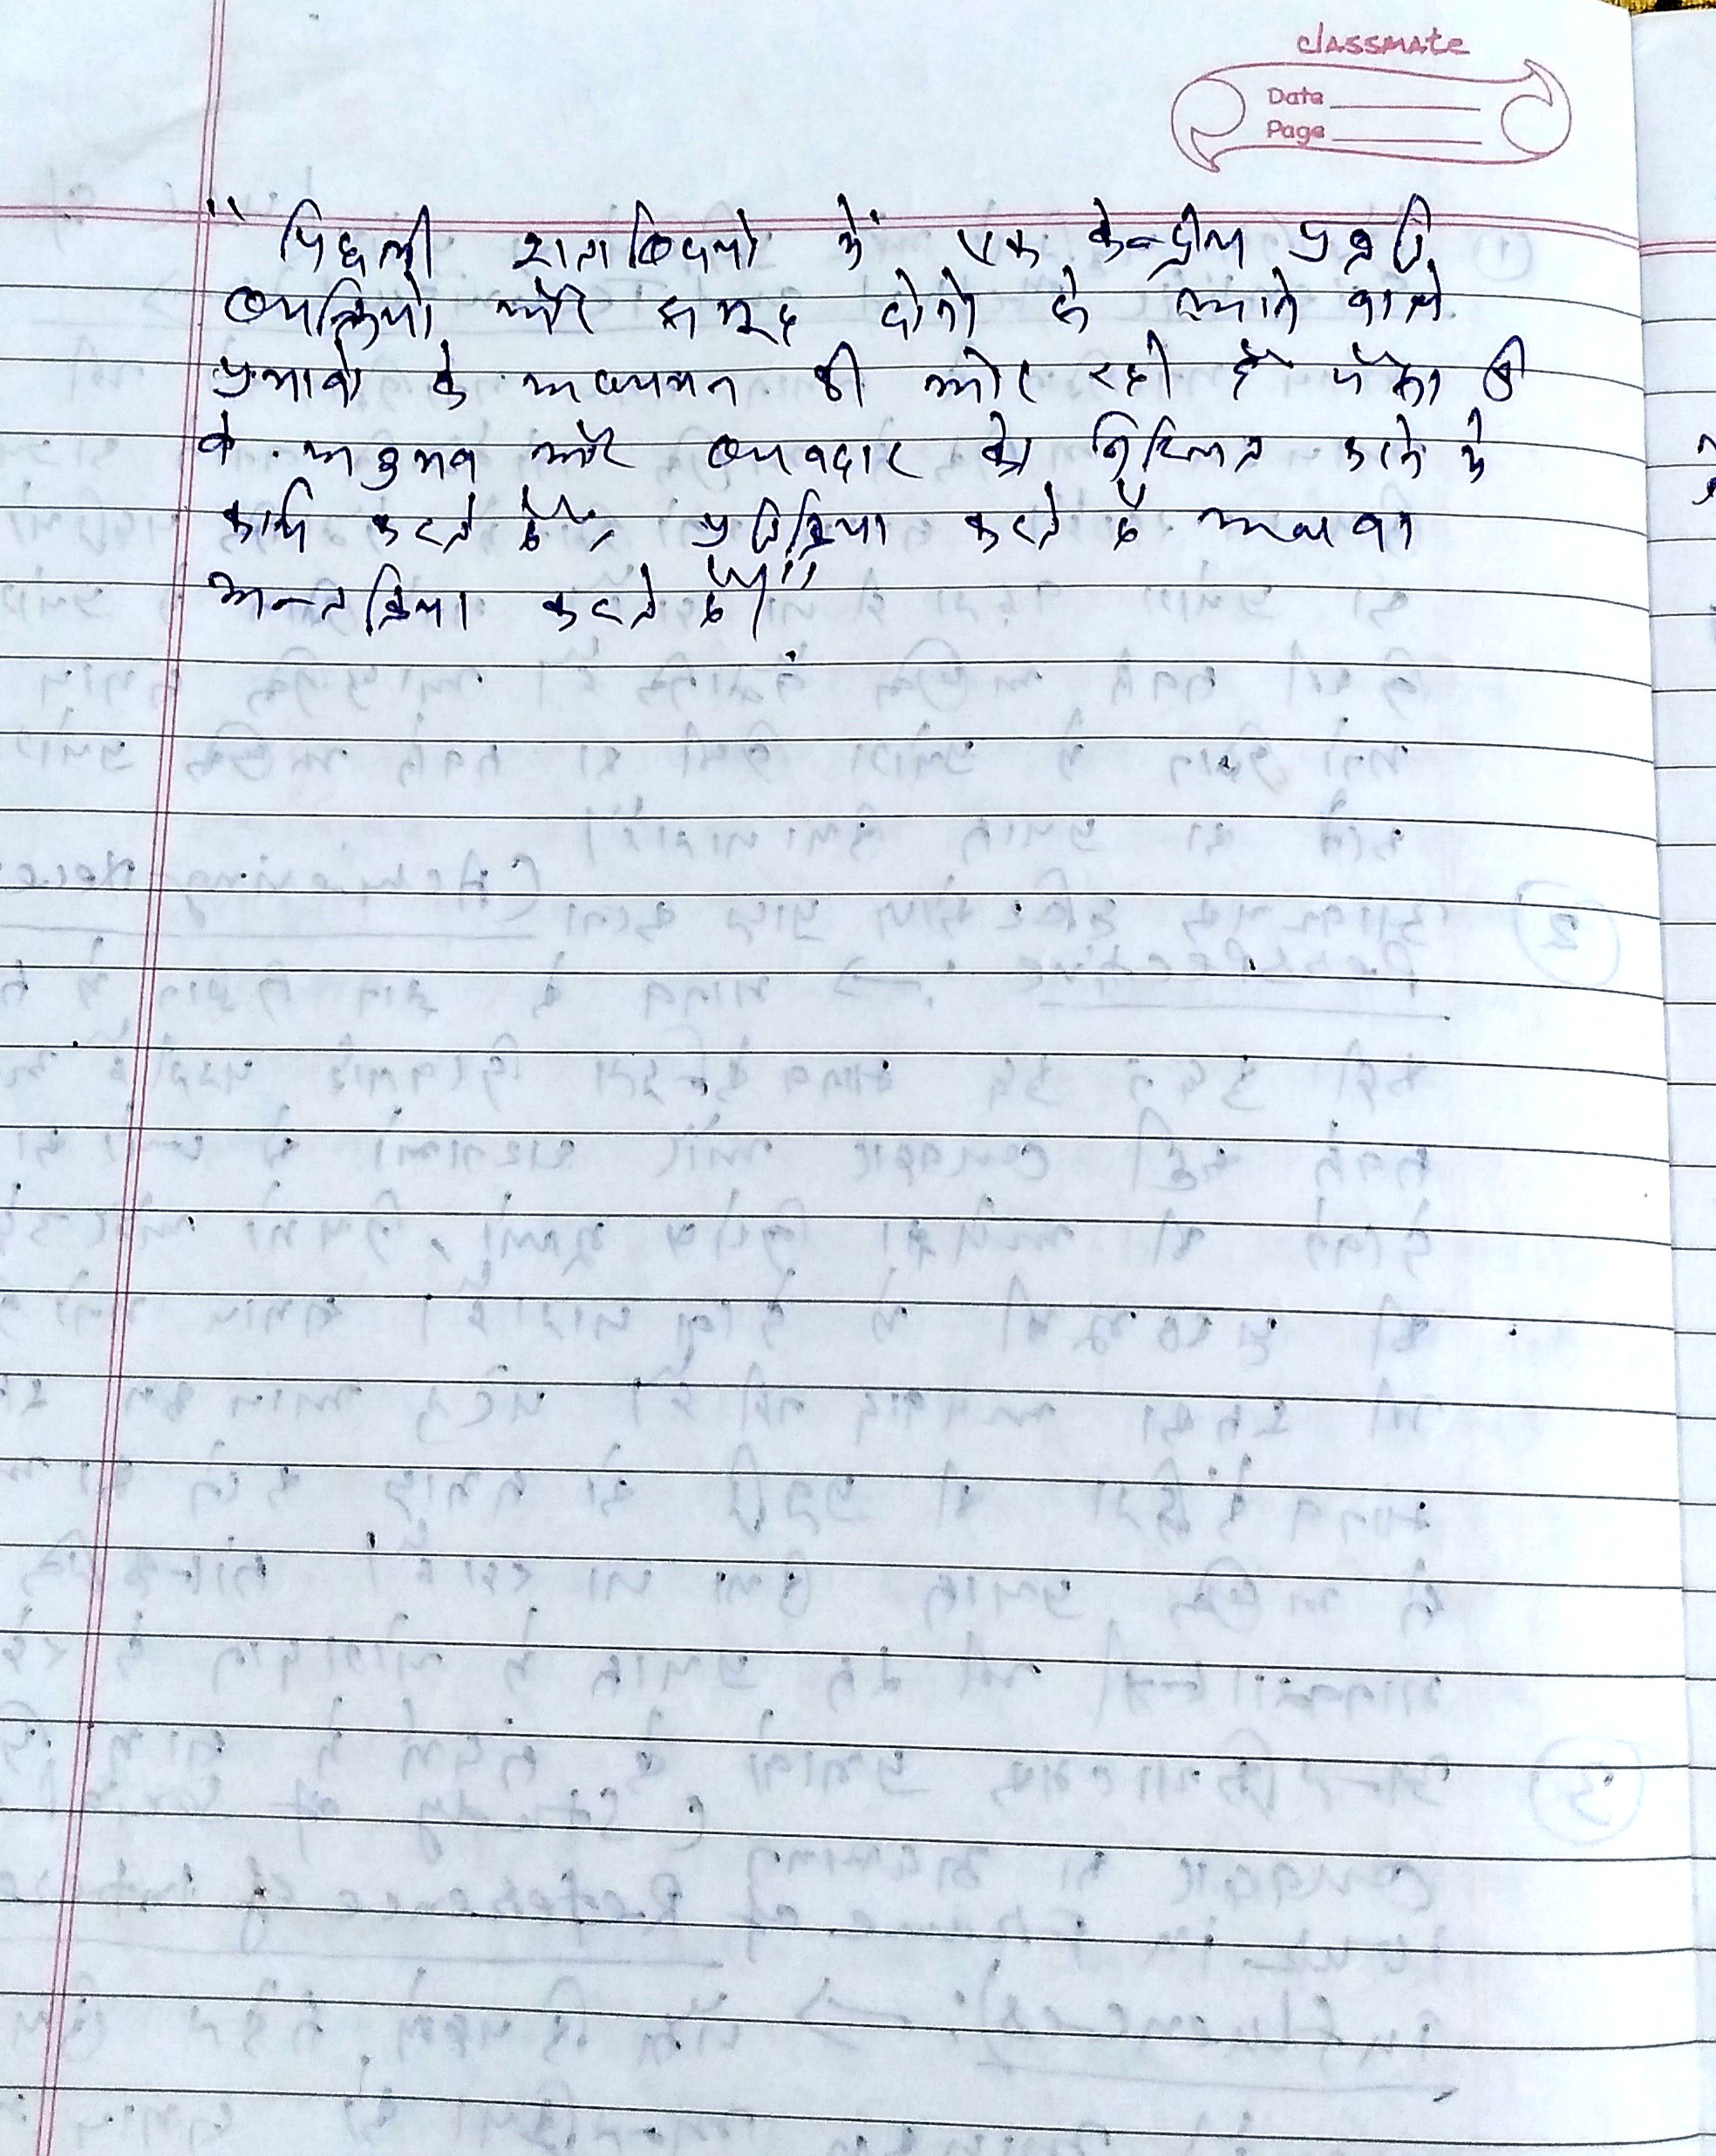 classmate
Date
Page
" पिछली शताब्दियो मे एक केन्द्रीय प्रवृति
व्यक्तियो और समूह दोनो से आने वाले
प्रभावो के अध्ययन की ओर रही है जैसा कि
वे अनुभव और व्यवहार को निश्चित करने मे
कार्य करते है, प्रतिक्रिया करते है अथवा
अन्तक्रिया करते है।"